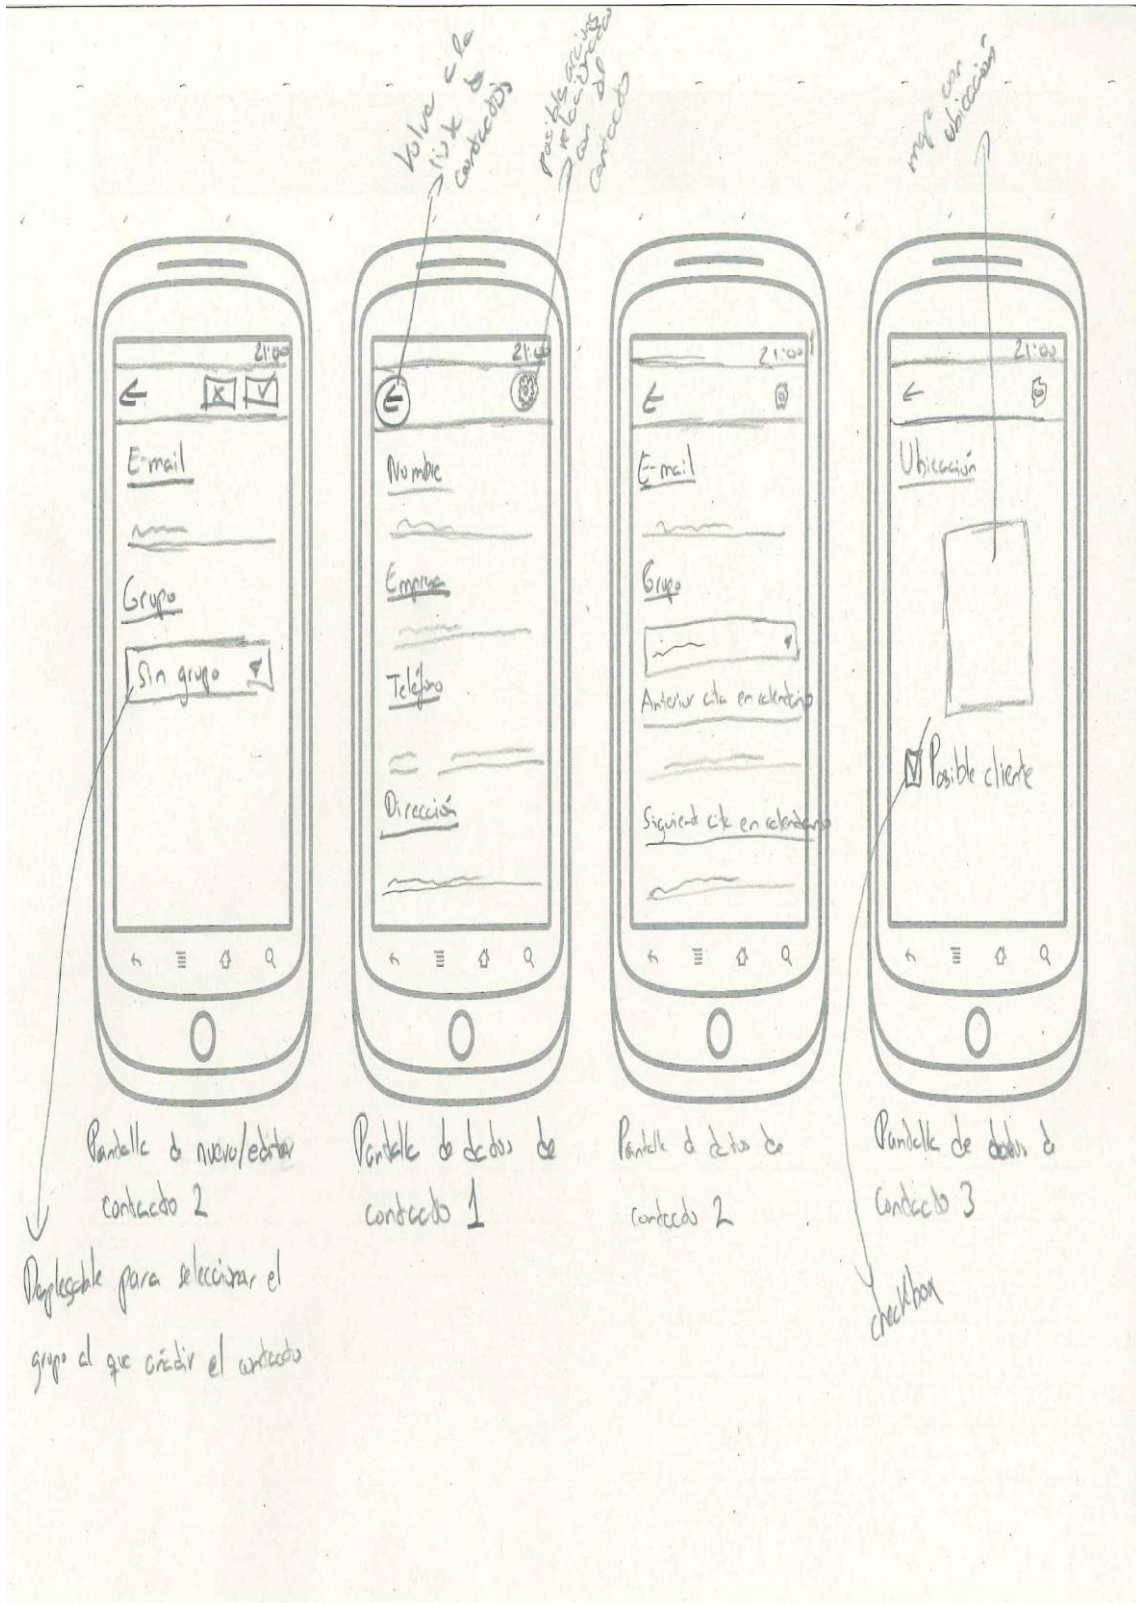 Volver a la
lista de
contactos
posibles acciones
relacionadas
con el
contacto
mapa con
ubicación
21:00
E-mail
Grupo
Sin grupo
Pantalla de nuevo/editar
contacto 2
Desplegable para seleccionar el
grupo al que añadir el contacto
21:00
Nombre
Empresa
Teléfono
Dirección
Pantalla de datos de
contacto 1
21:00
E-mail
Grupo
Anterior cita en calendario
Siguiente cita en calendario
Pantalla de datos de
contacto 2
21:00
Ubicación
Posible cliente
Pantalla de datos de
contacto 3
checkbox